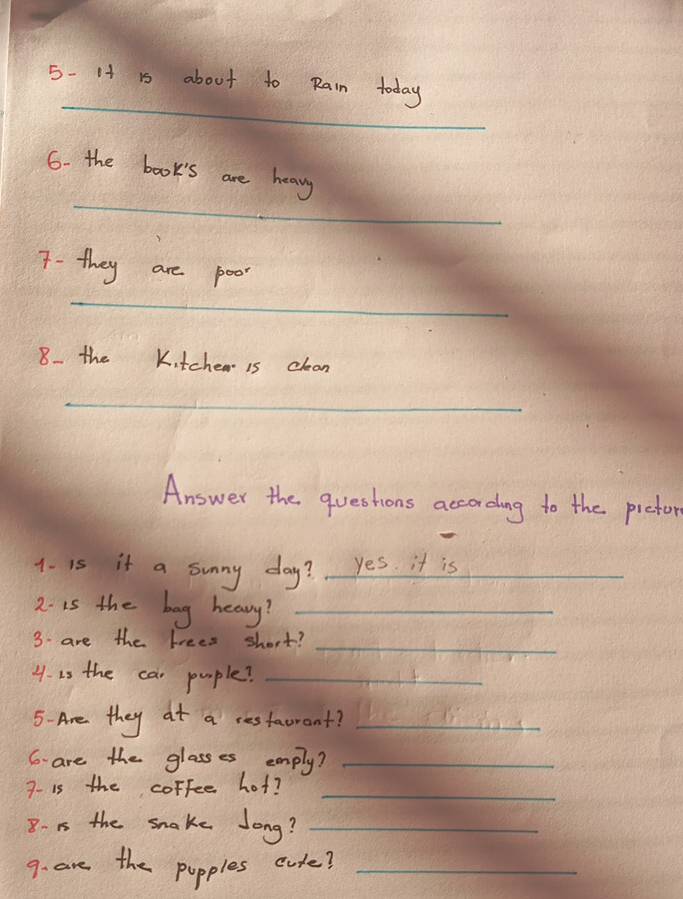 5- it is about to Rain today
6- the book's are heavy
7- they are poor
8- the Kitchen is clean
Answer the questions according to the pictur
1- is it a sunny day? yes. it is
2- is the bag heavy?
3- are the trees short?
4- is the car purple?
5- Are they at a restaurant?
6- are the glasses emply?
7- is the coffee hot?
8- is the snake long?
9- are the pupples cute?